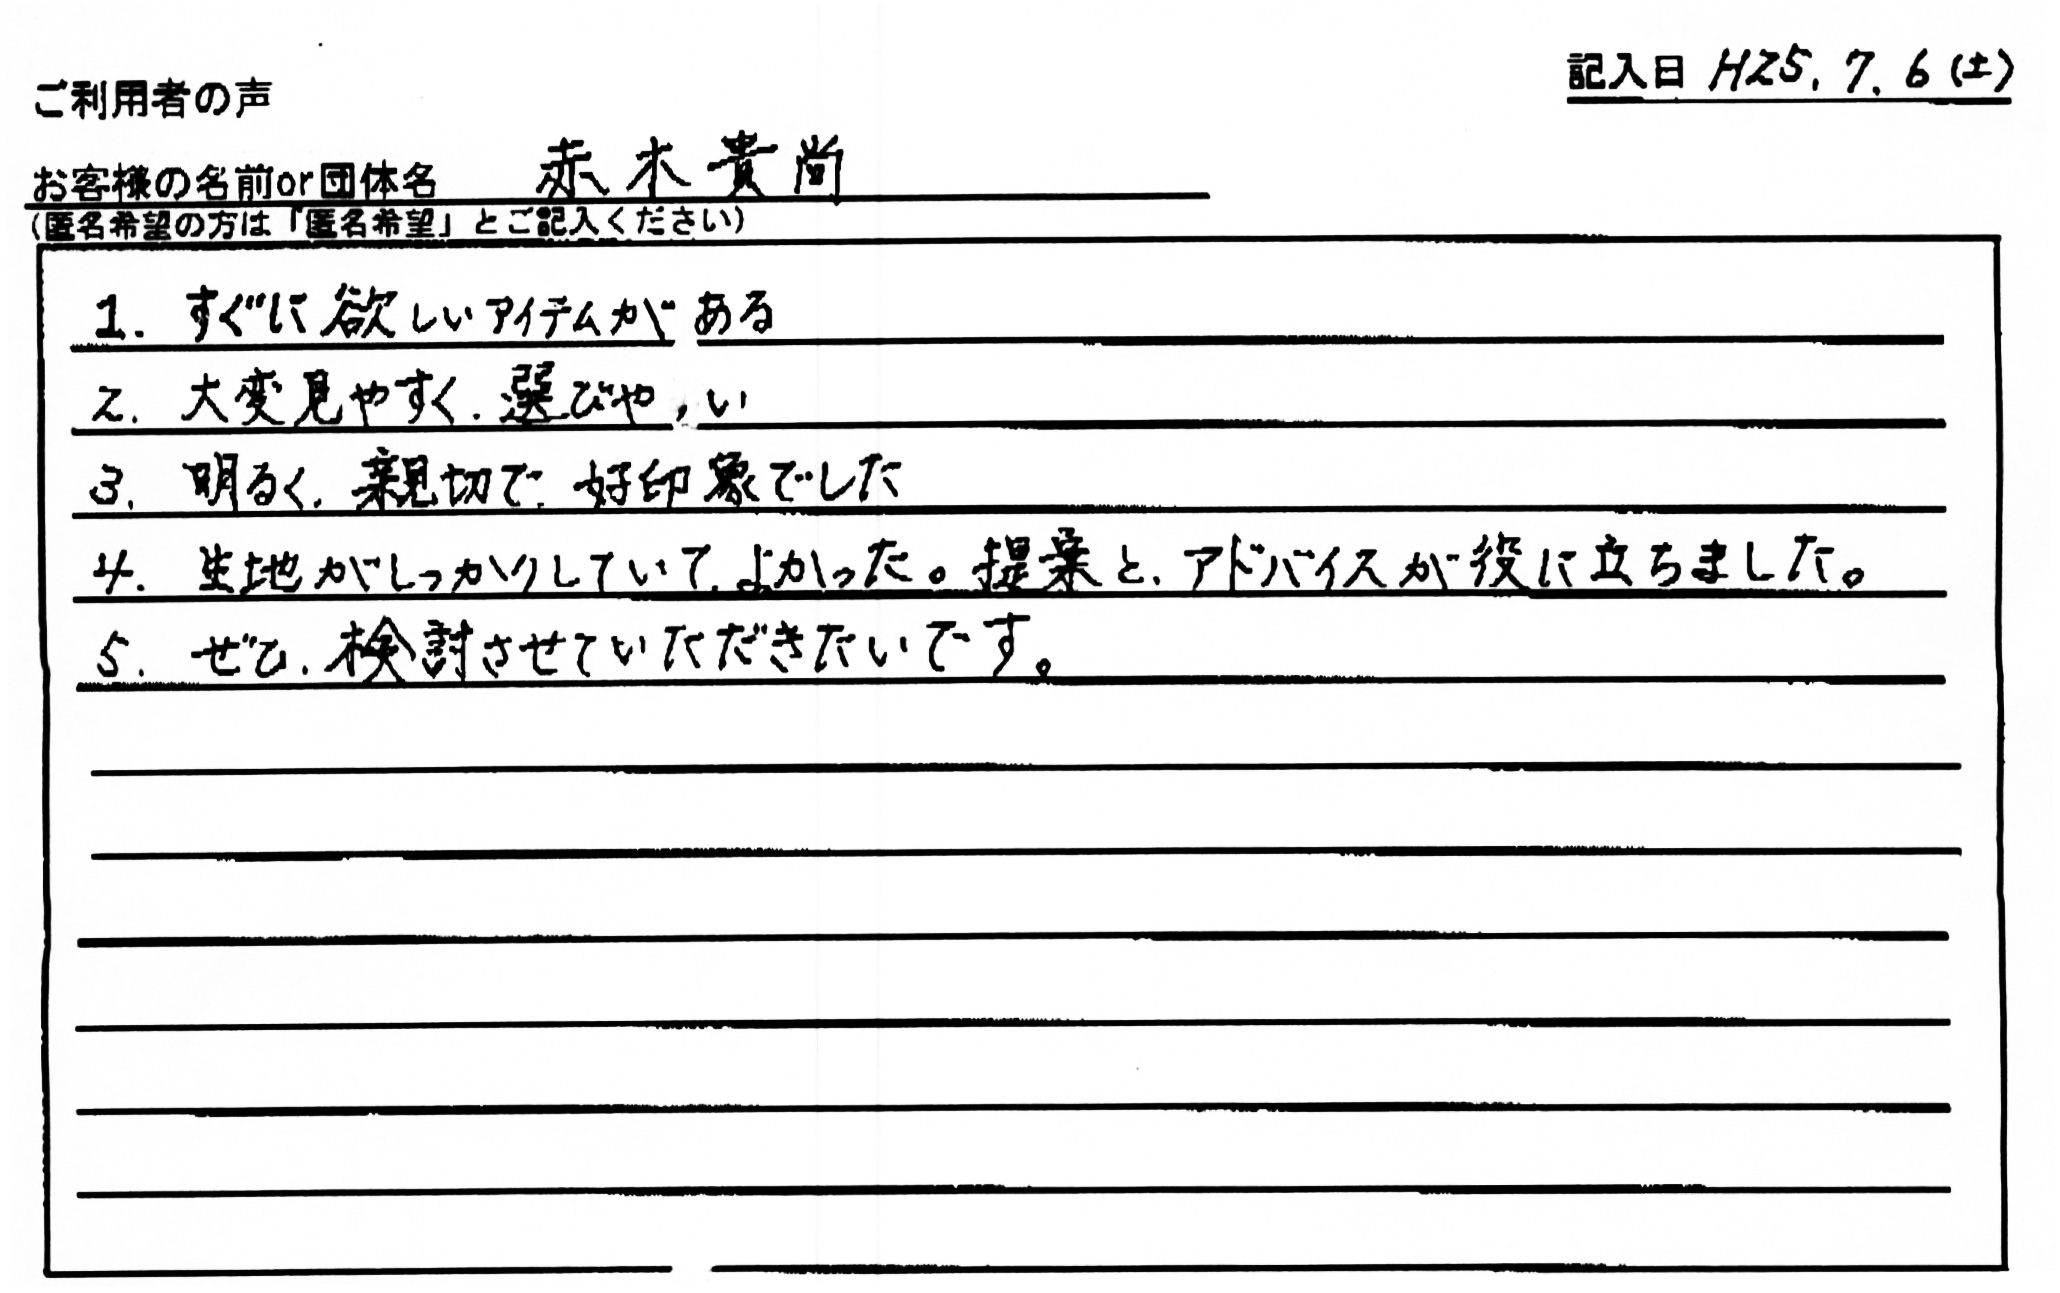 記入日 H25.7.6(土)
ご利用者の声
お客様の名前or団体名 赤木貴尚
(匿名希望の方は「匿名希望」とご記入ください)
1. すぐに欲しいアイテムがある
2. 大変見やすく、選びや い
3. 明るく、親切で、好印象でした
4. 生地がしっかりしていて、よかった。提案と、アドバイスが役に立ちました。
5. ぜひ、検討させていただきたいです。